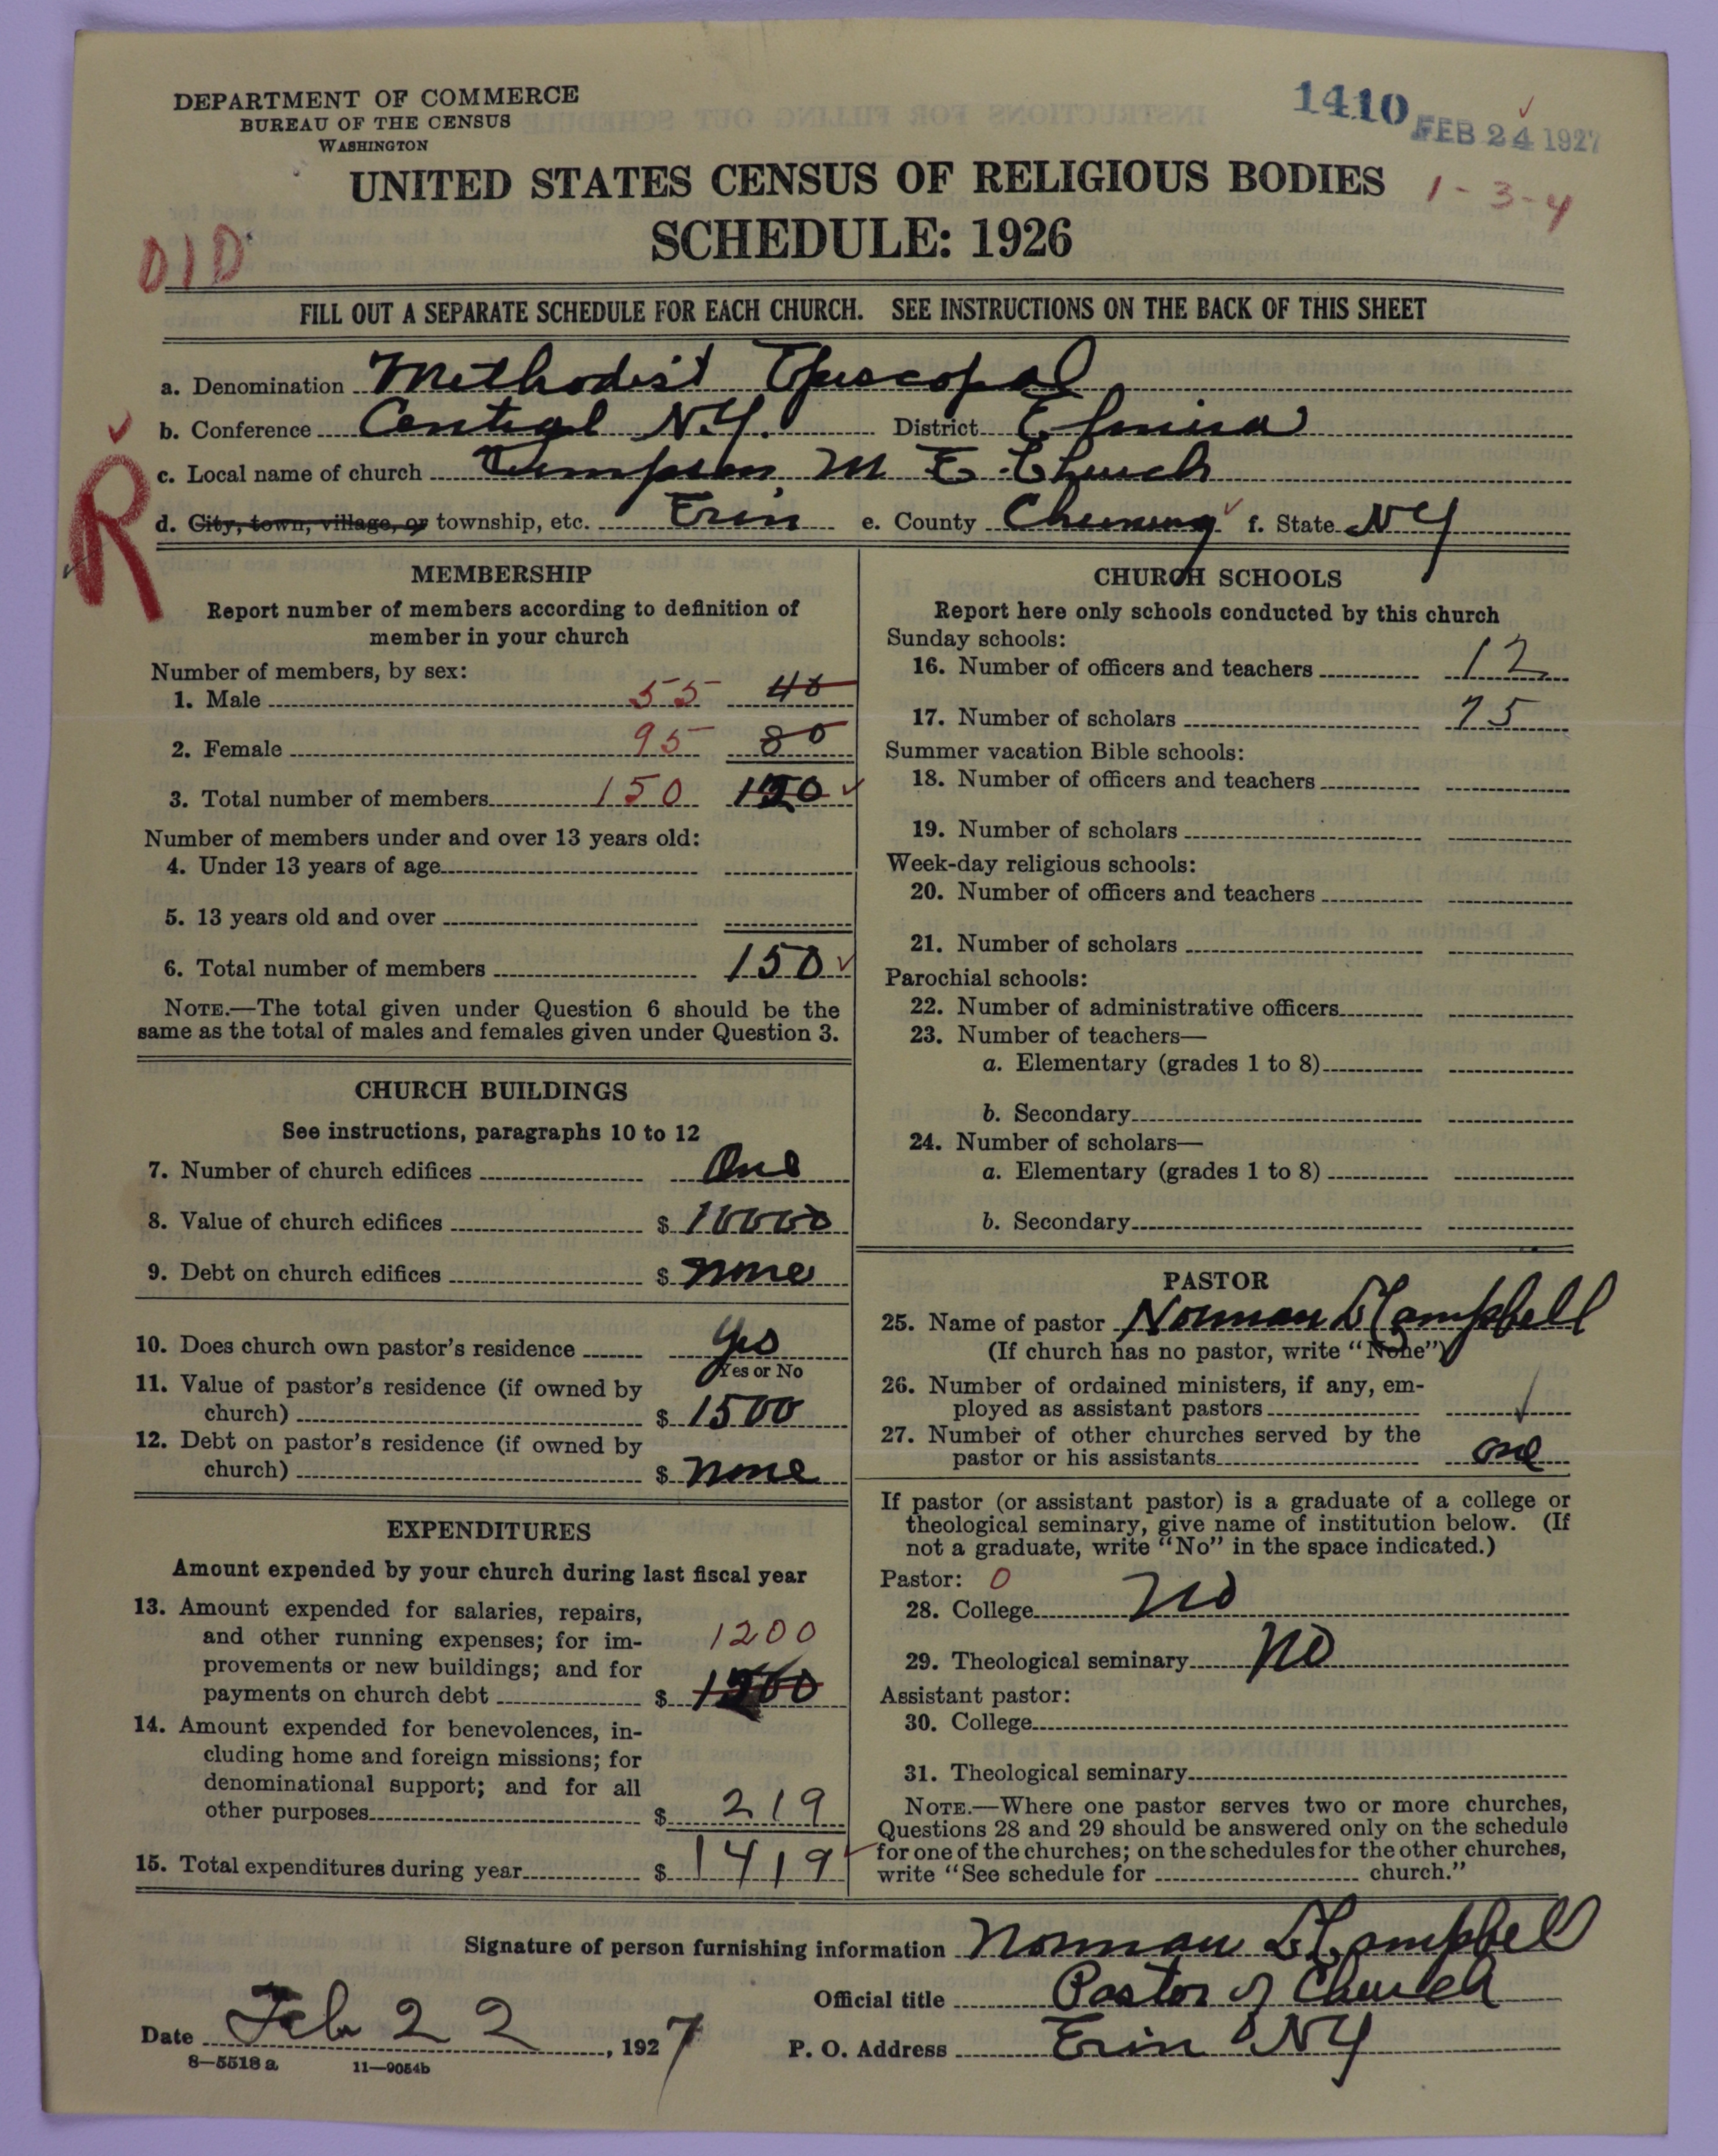 DEPARTMENT OF COMMERCE
BUREAU OF THE CENSUS
WASHINGTON
1410
FEB 24 1927
UNITED STATES CENSUS OF RELIGIOUS BODIES
1-3-4
SCHEDULE: 1926
FILL OUT A SEPARATE SCHEDULE FOR EACH CHURCH. SEE INSTRUCTIONS ON THE BACK OF THIS SHEET
a. Denomination Methodist Episcopal
b. Conference Central N.Y. District Elmira
R
c. Local name of church M E Church
d. City, town, village, or township, etc. Erin e. County Chemung f. State NY
MEMBERSHIP
Report number of members according to definition of
member in your church
Number of members, by sex:
1. Male 55 40
2. Female 95 80
3. Total number of members 150 150
Number of members under and over 13 years old:
4. Under 13 years of age
5. 13 years old and over
6. Total number of members 150
NOTE.—The total given under Question 6 should be the
same as the total of males and females given under Question 3.
CHURCH BUILDINGS
See instructions, paragraphs 10 to 12
7. Number of church edifices One
8. Value of church edifices $ 10000
9. Debt on church edifices $ none
10. Does church own pastor's residence Yes
Yes or No
11. Value of pastor's residence (if owned by
church) $ 1500
12. Debt on pastor's residence (if owned by
church) $ none
EXPENDITURES
Amount expended by your church during last fiscal year
13. Amount expended for salaries, repairs,
and other running expenses; for im- 1200
provements or new buildings; and for
payments on church debt $
14. Amount expended for benevolences, in-
cluding home and foreign missions; for
denominational support; and for all
other purposes $ 219
15. Total expenditures during year $ 1419
CHURCH SCHOOLS
Report here only schools conducted by this church
Sunday schools:
16. Number of officers and teachers 12
17. Number of scholars 75
Summer vacation Bible schools:
18. Number of officers and teachers
19. Number of scholars
Week-day religious schools:
20. Number of officers and teachers
21. Number of scholars
Parochial schools:
22. Number of administrative officers
23. Number of teachers—
a. Elementary (grades 1 to 8)
b. Secondary
24. Number of scholars—
a. Elementary (grades 1 to 8)
b. Secondary
PASTOR
25. Name of pastor Norman D Campbell
(If church has no pastor, write "None")
26. Number of ordained ministers, if any, em-
ployed as assistant pastors
27. Number of other churches served by the
pastor or his assistants one
If pastor (or assistant pastor) is a graduate of a college or
theological seminary, give name of institution below. (If
not a graduate, write "No" in the space indicated.)
Pastor: 0
28. College No
29. Theological seminary No
Assistant pastor:
30. College
31. Theological seminary
NOTE.—Where one pastor serves two or more churches,
Questions 28 and 29 should be answered only on the schedule
for one of the churches; on the schedules for the other churches,
write "See schedule for church."
Signature of person furnishing information Norman D Campbell
Official title Pastor of Church
Date Feb 22, 1927 P. O. Address Erin NY
8—5518 a 11—9054b